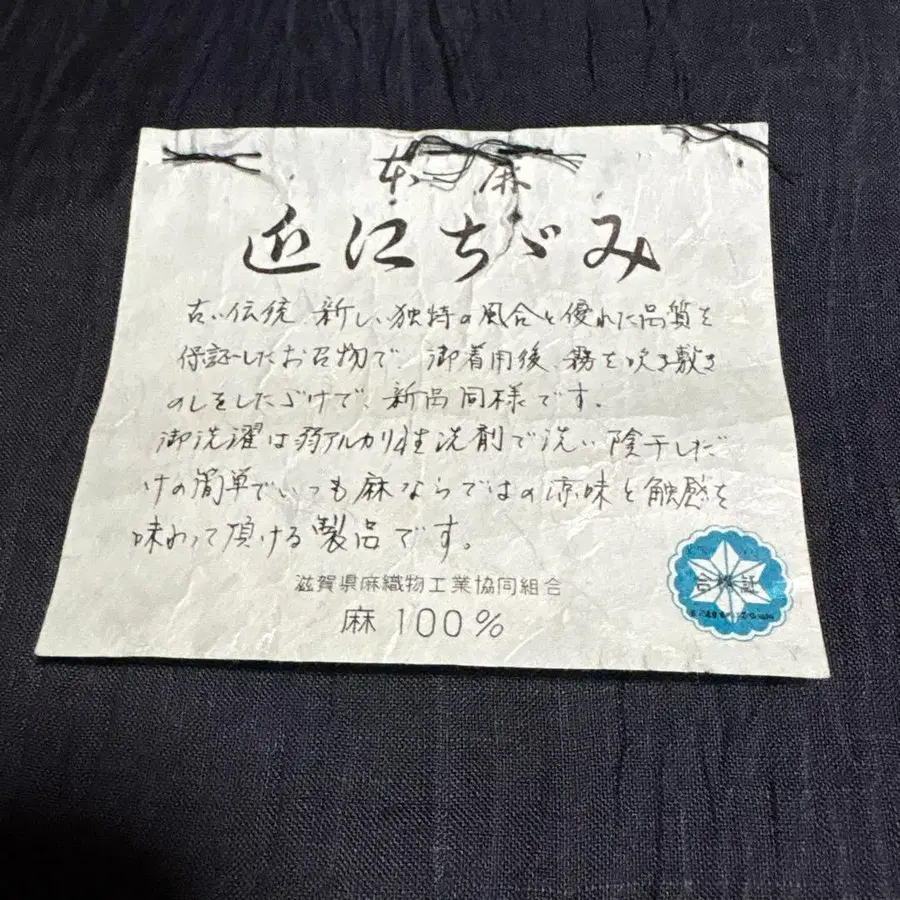 本麻
近江ちゞみ
古い伝統、新しい独特の風合と優れた品質を
保証したお召物で、御着用後、霧を吹き敷き
のしをしたゞけで、新品同様です。
御洗濯は弱アルカリ性洗剤で洗い、陰干しだ
けの簡単でいつも麻ならではの涼味と触感を
味わって頂ける製品です。
滋賀県麻織物工業協同組合
麻 100%
合格証